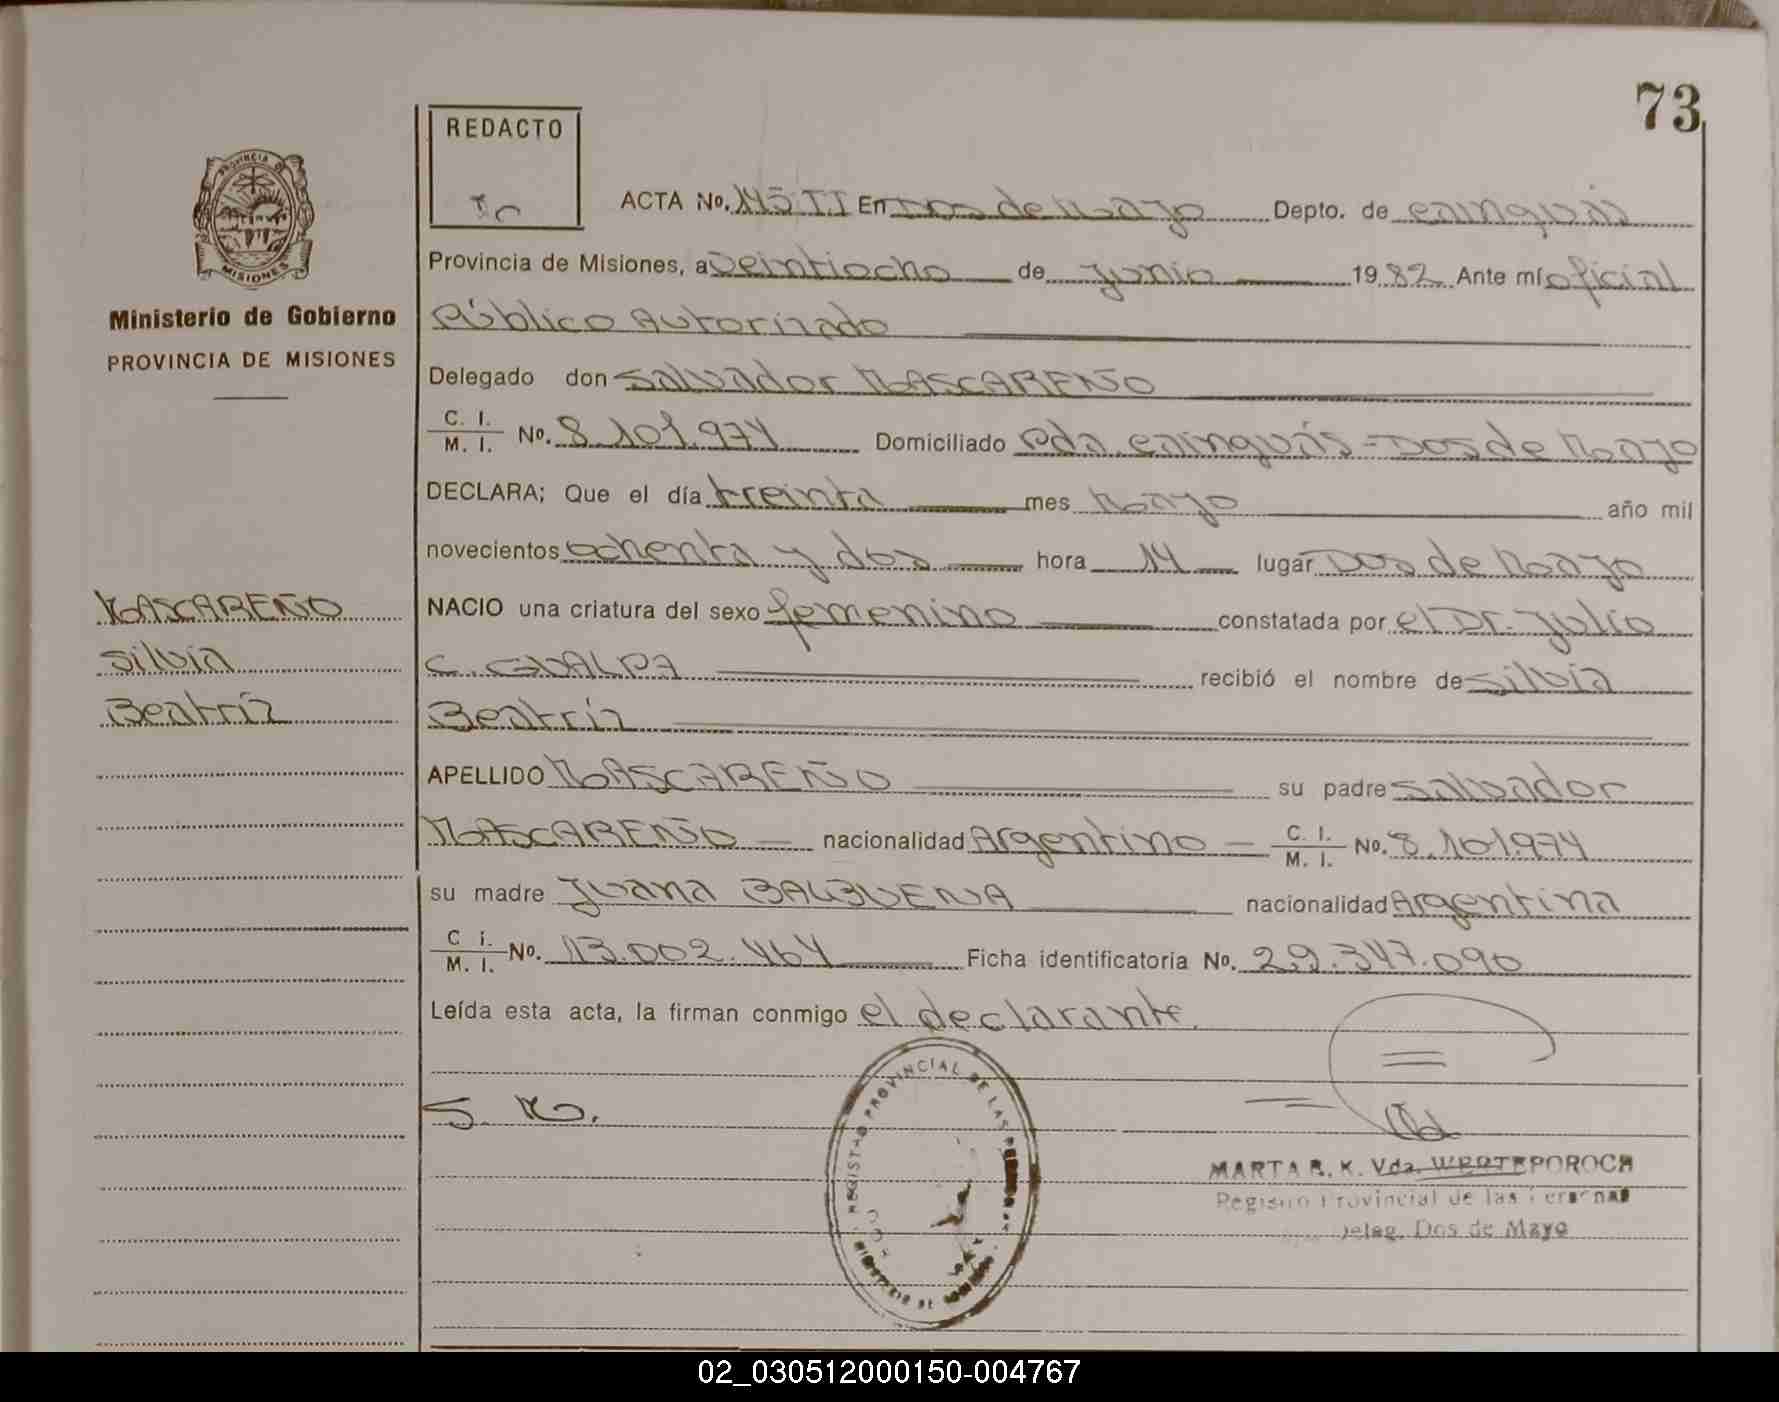 73
REDACTO
PROVINCIA DE
MISIONES
Ministerio de Gobierno
PROVINCIA DE MISIONES
ACTA No. 145 TI En Dos de Mayo Depto. de Cainguás
Provincia de Misiones, a veintiocho de Junio 1982 Ante mí oficial
Público Autorizado
Delegado don Salvador MASCAREÑO
C. I.
M. I. No. 8.101.974 Domiciliado Pda. Cainguás - Dos de Mayo
DECLARA; Que el día treinta mes Mayo año mil
novecientos ochenta y dos hora 14 lugar Dos de Mayo
NACIO una criatura del sexo femenino constatada por el Dr. Julio
C. GUALPA recibió el nombre de Silvia
Beatríz
APELLIDO MASCAREÑO su padre Salvador
MASCAREÑO nacionalidad Argentino C. I. M. I. No. 8.101.974
su madre Juana BALBUENA nacionalidad Argentina
C i. M. I. No. 13.002.464 Ficha identificatoria No. 29.347.090
Leída esta acta, la firman conmigo el declarante.
MASCAREÑO
Silvia
Beatríz
S. M.
REGISTRO PROVINCIAL DE LAS
MARTA R. K. Vda.
Registro Provincial de las Personas
Deleg. Dos de Mayo
02_030512000150-004767